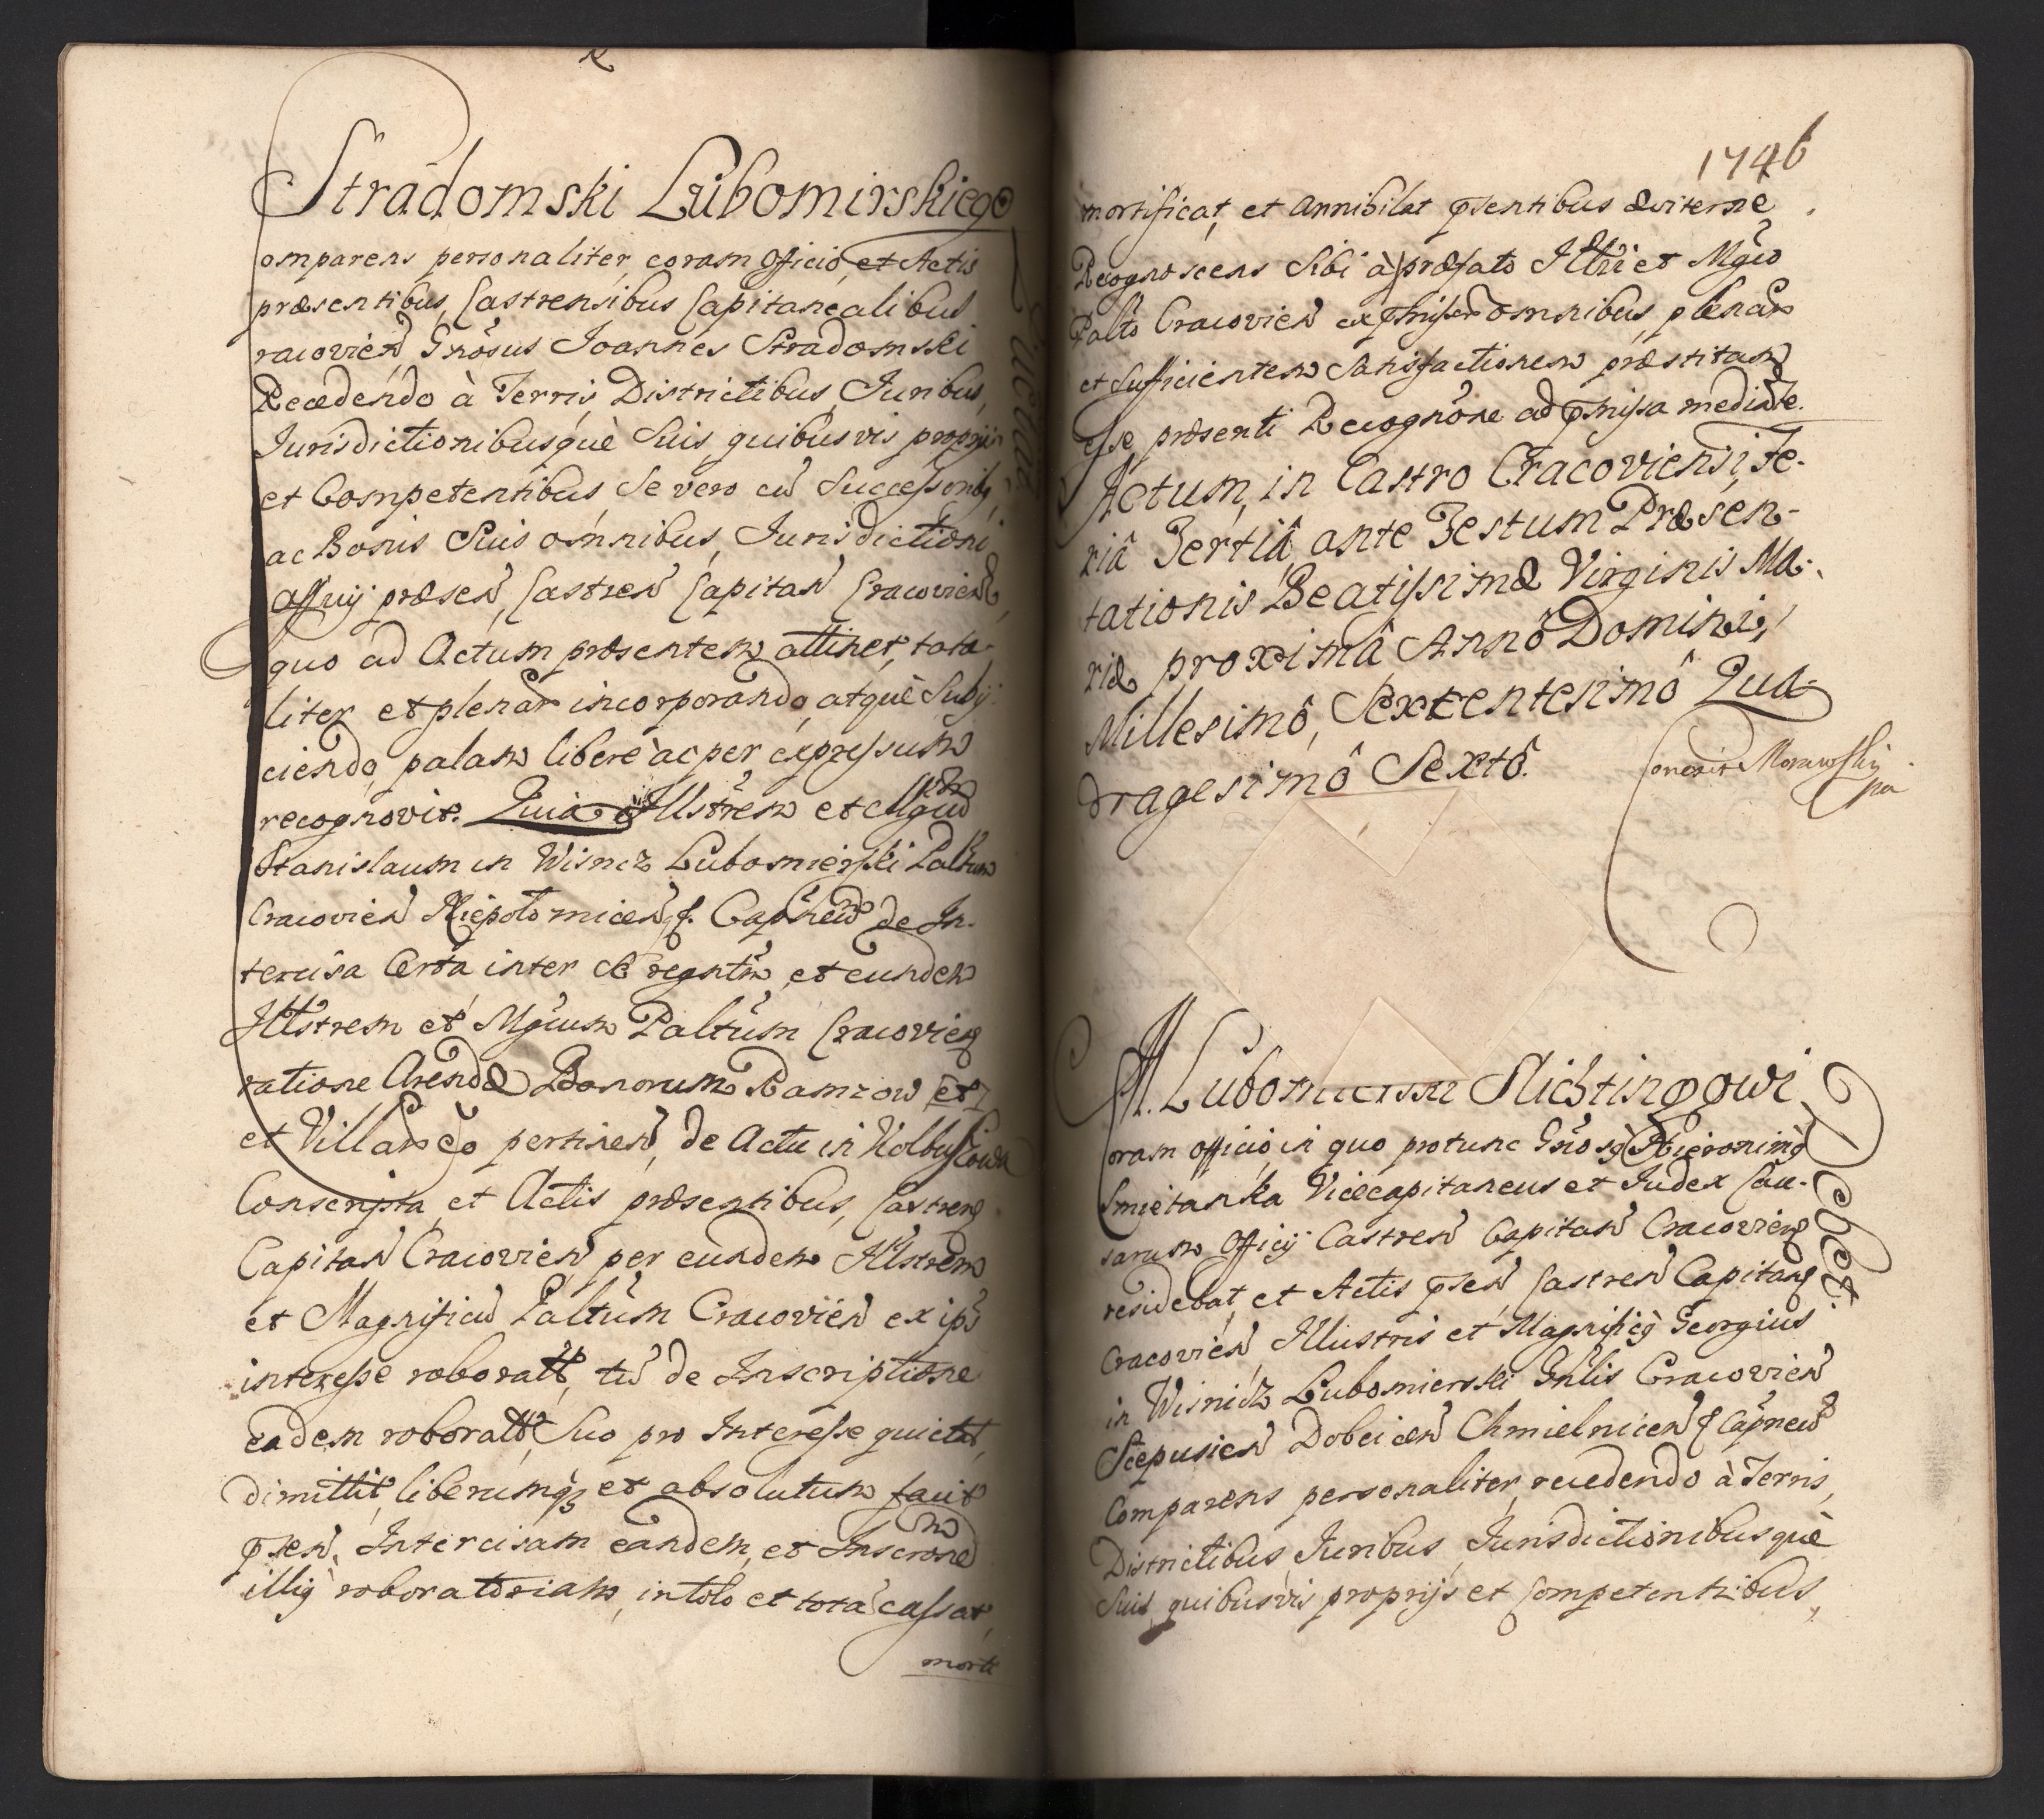 Stradomski Lubomirskiego
omparens personaliter, coram Officio, et Actis
præsentibus, Castrensibus Capitanealibus
racovien̄ Gnōsus Joannes Stradomski
Recedendo à Terris, Districtibus, Juribus,
Jurisdictionibusquè Suis, quibusvis proprijs
et Competentibus, Se vero cū Successorib9,
ac Bonis Suis omnibus, Jurisdictioni
Officij præsen̄, Castren̄ Capitan̄ Cracovien̄,
quo ad Actum præsentem attinet, tota-
liter et plenariè incorporando, atquè Subij-
ciendo, palam liberè ac per expressum
recognovit. Quia Illstrem et Mgcum
Stanislaum in Wisnicz Lubomierski Paltum
Cracovien̄ Niepolomicen̄ &. Capneū de In-
tercisa Certa inter Se regntm, et eundem
Illstrem et Mgcum Paltum Cracovien̄
ratione Arendæ Bonorum Ramzow [et]
et Villar eo pertinen̄, de Actu in Kolbuszowa
Conscripta, et Actis præsentibus, Castren̄
Capitan̄ Cracovien̄ per eundem Illstrem
et Magnificū Paltum Cracovien̄ ex ips
interesse roborat, tū de Inscriptione
eadem roborat, Suo pro Interesse quietat,
dimittit, liberumq3 et absolutum facit
pnsen̄, Intercisam eandem, et Inscrone
illi9 roboratoriam, in toto et tota cassat,
morti
1746
mortificat, et annihilat pnsentibus æviternè.
Recognoscens Sibi à præfato Illri et Mgco
Palto Cracovien̄ ex præmissis omnibus, plenam
et Sufficientem Satisfactionem præstitam
esse, præsenti Recognōne ad pmissa mediante.
Actum, in Castro Cracoviensi, Fe-
riâ Tertiâ, ante Festum Præsen-
tationis Beatissimæ Virginis Ma-
riæ proximâ Annô Domini,
Millesimô, Sexcentesimô Qua-
dragesimô Sextô.
Correxit Morawski
mpa
A. Lubomierski Slichtingowi
oram officio, in quo protunc Gnos9 Hieronim9
Smietanka Vicecapitaneus et Judex Cau-
sarum Officij Castren̄ Capitan̄ Cracovien̄
residebat, et Actis pnsen̄ Castren̄ Capitan̄
Cracovien̄, Illustris et Magnific9 Georgius
in Wisnicz Lubomierski Gnlis Cracovien̄
Scepusien̄ Dobcicen̄ Chmielnicen̄ & Capneus
Comparens personaliter, recedendo à Terris,
Districtibus, Juribus, Jurisdictionibusquè
Suis, quibusvis proprijs et Competentibus,
Debet